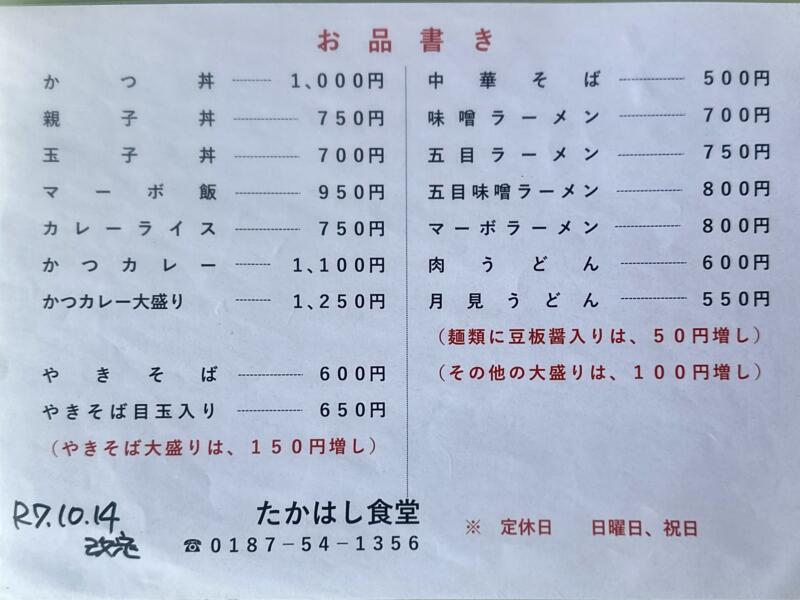 お品書き
かつ丼 1,000円
親子丼 750円
玉子丼 700円
マーボ飯 950円
カレーライス 750円
かつカレー 1,100円
かつカレー大盛り 1,250円
やきそば 600円
やきそば目玉入り 650円
（やきそば大盛りは、１５０円増し）
中華そば 500円
味噌ラーメン 700円
五目ラーメン 750円
五目味噌ラーメン 800円
マーボラーメン 800円
肉うどん 600円
月見うどん 550円
（麺類に豆板醤入りは、５０円増し）
（その他の大盛りは、１００円増し）
R7.10.14
改定
たかはし食堂
☎0187-54-1356
※ 定休日 日曜日、祝日